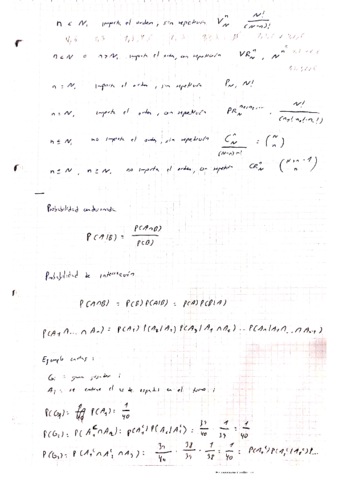 n < N, importa el orden, sin repetición V_N^n N!/(N-n)!
n ≤ N o n > N, importa el orden, con repetición VR_N^n, N^n
n = N, importa el orden, sin repetición P_N, N!
n = N, importa el orden, con repetición PR_N N!/(n₁! n₂! n₃!)
n ≤ N no importa el orden, sin repetición C_N^n = (N n)
(N-n)! n!
n ≤ N, n ≥ N, no importa el orden, con repetición CR_N^n (N+n-1 n)
Probabilidad condicionada
P(A|B) = P(A∩B)/P(B)
Probabilidad de intersección
P(A∩B) = P(B)P(A|B) = P(A)P(B|A)
P(A₁∩...∩Aₙ) = P(A₁) P(A₂|A₁) P(A₃|A₁∩A₂)... P(Aₙ|A₁∩...∩Aₙ₋₁)
Ejemplo cartas:
G: = gana jugador i
Aᵢ = se extrae el as de espadas en el turno i
P(G₁) = P(A₁) = 1/40
P(G₂) = P(A₁ᶜ∩A₂) = P(A₁ᶜ) P(A₂|A₁ᶜ) = 39/40 · 1/39 = 1/40
P(G₃) = P(A₁ᶜ∩A₂ᶜ∩A₃) = 39/40 · 38/39 · 1/38 = 1/40 = P(A₁ᶜ)P(A₂ᶜ|A₁ᶜ)P...